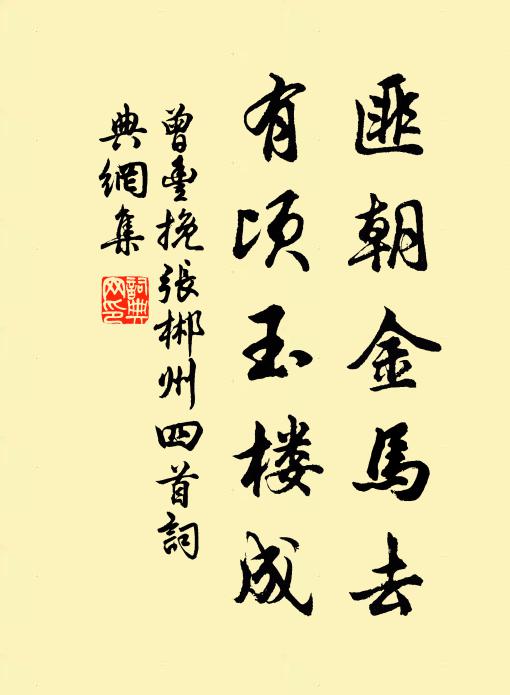 匪朝金馬去
有頃玉楼成
曾豊挽張郴州四首詞
典網集
詞典
网印